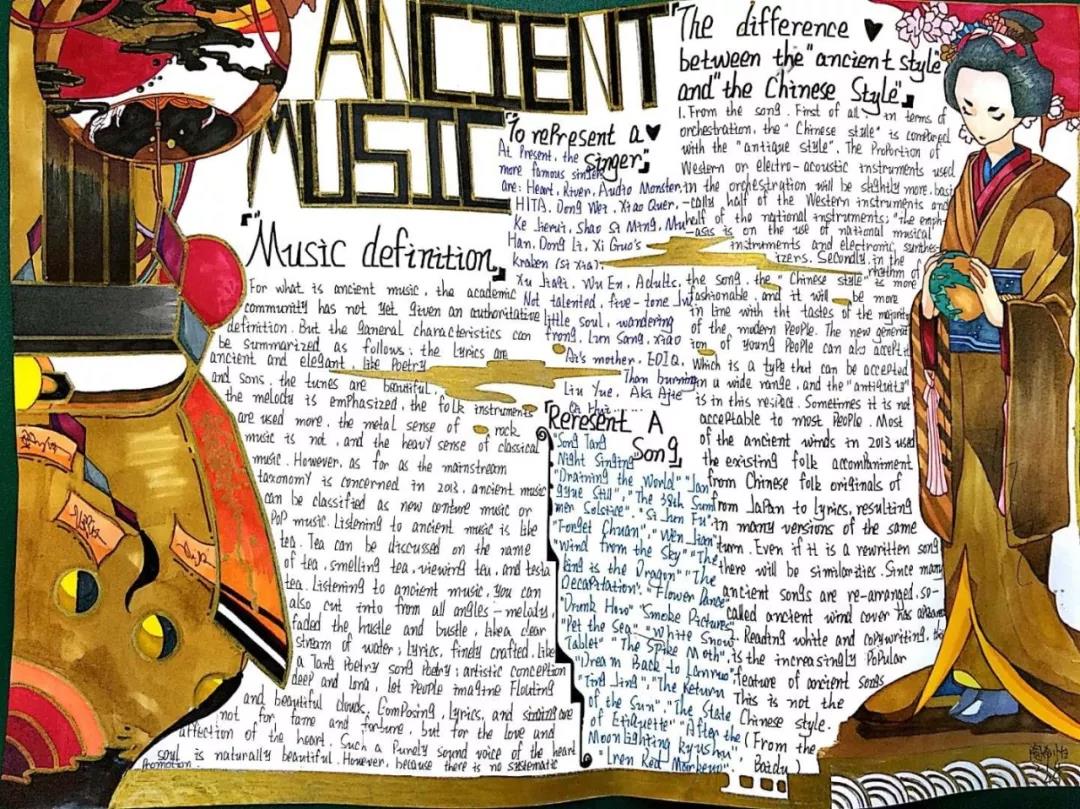 ANCIENT
MUSIC
"Music definition"
For what is ancient music, the academic
community has not yet given an authoritative
definition. But the general characteristics can
be summarized as follows: the lyrics are
ancient and elegant, like Poetry
and sons, the tunes are beautiful,
the melody is emphasized, the folk instruments
are used more, the metal sense of rock
music is not, and the heavy sense of classical
music. However, as far as the mainstream
taxonomy is concerned in 2013, ancient music
can be classified as new century music or
Pop music. Listening to ancient music is like
tea. Tea can be discussed on the name
of tea, smelling tea, viewing tea, and
tea. Listening to ancient music, You can
also cut into from all angles - melody,
faded the hustle and bustle, like a clear
stream of water; lyrics, finely crafted, like
a Tang Poetry song Poetry; artistic conception
deep and long, let People imagine Floating
and beautiful clouds, Composing, lyrics, and are
not for fame and fortune, but for the love and
affection of the heart. Such a Purely sound voice of the heart
soul is naturally beautiful. However, because there is no systematic
Promotion.
"To rePresent a
singer"
At Present, the
more famous singers
are: Heart, River, Audio Monster,
HITA, Dong Wei, Xiao Quer,
Ke Jierui, Shao Si Ming, Mu
Han, Dong Li, Xi Guo's
Kraken (Si Xia),
Xu Jiaqi, Wu En, Adults,
Not talented, five-tone Jw
little soul, wandering
frong, Lun Sang, Xiao
Ai's mother, EDIQ,
Than burning
Liu Yue, Aka Ajie
"Reresent A
Song"
"Song Tang
Night Singing"
"Draining the World" "Jan
ggue Still", "The 38th Sum
mer Solstice", "Si Zhen Fu",
"Forget Chuan", "Wen Jian"
"Wind from the Sky" "The
king is the Dragon" "The
Decapatation", "Flower Dance"
"Drunk How" "Smoke Pictures"
"Pet the Sea", "White Snow"
Tablet" "The Spike Moth",
"Dream Back to
"Ting Jing", "The Return
of the Sun", "The State
of Etiquette" "After the
Moon lighting kyushu",
"Inen Red
"The difference
between the "ancient style"
and "the Chinese Style"
1. From the song. First of all, in terms of
orchestration, the "Chinese style" is compared
with the "antique style". The Proportion of
Western or electro-acoustic instruments used
in the orchestration will be slightly more, basi
-cally half of the Western instruments and
half of the national instruments; "the emph
-asis is on the use of national musical
instruments and electronic, synthes-
izers. Secondly, in the rhythm of
the song, the "Chinese style" is more
fashionable, and it will be more
in line with tht tastes of the majority
of the modern People. The new generat
ion of young People can also accept it,
which is a type that can be accepted
in a wide range, and the "antiquity"
is in this respect. Sometimes it is not
acceptable to most People. Most
of the ancient winds in 2013 used
the existing folk accompaniment
from Chinese folk originals of
from Japan to lyrics, resulting
in many versions of the same
turn. Even if it is a rewritten song
there will be similarities. Since many
ancient songs are re-arranged, so-
called ancient wind cover has
2. Reading white and copywriting, the
is the increasingly Popular
feature of ancient songs
This is not the
Chinese style.
(From the
Baidu)